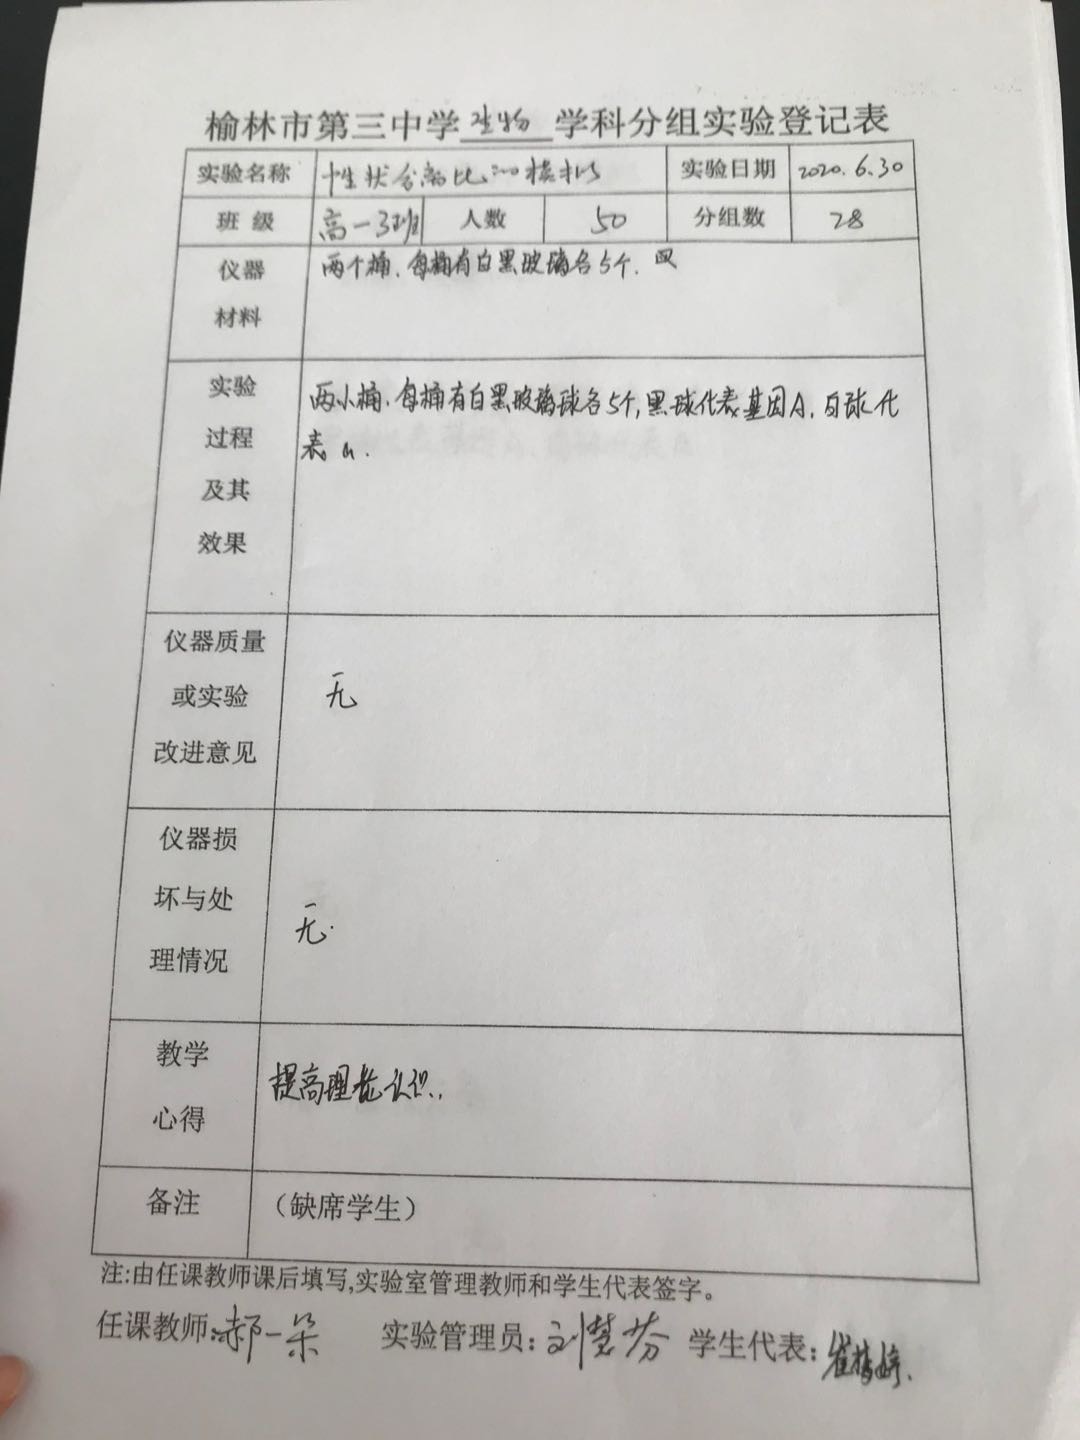 榆林市第三中学生物学科分组实验登记表
实验名称 性状分离比的模拟 实验日期 2020.6.30
班 级 高一3班 人数 50 分组数 28
仪器 两个桶、每桶有白黑玻璃各5个.
材料
实验 两小桶、每桶有白黑玻璃球各5个,黑球代表基因A,白球代
过程 表a.
及其
效果
仪器质量
或实验 无
改进意见
仪器损
坏与处 无.
理情况
教学 提高理论认识.
心得
备注 （缺席学生）
注:由任课教师课后填写,实验室管理教师和学生代表签字。
任课教师:郝一朵 实验管理员:刘慧芬 学生代表:崔